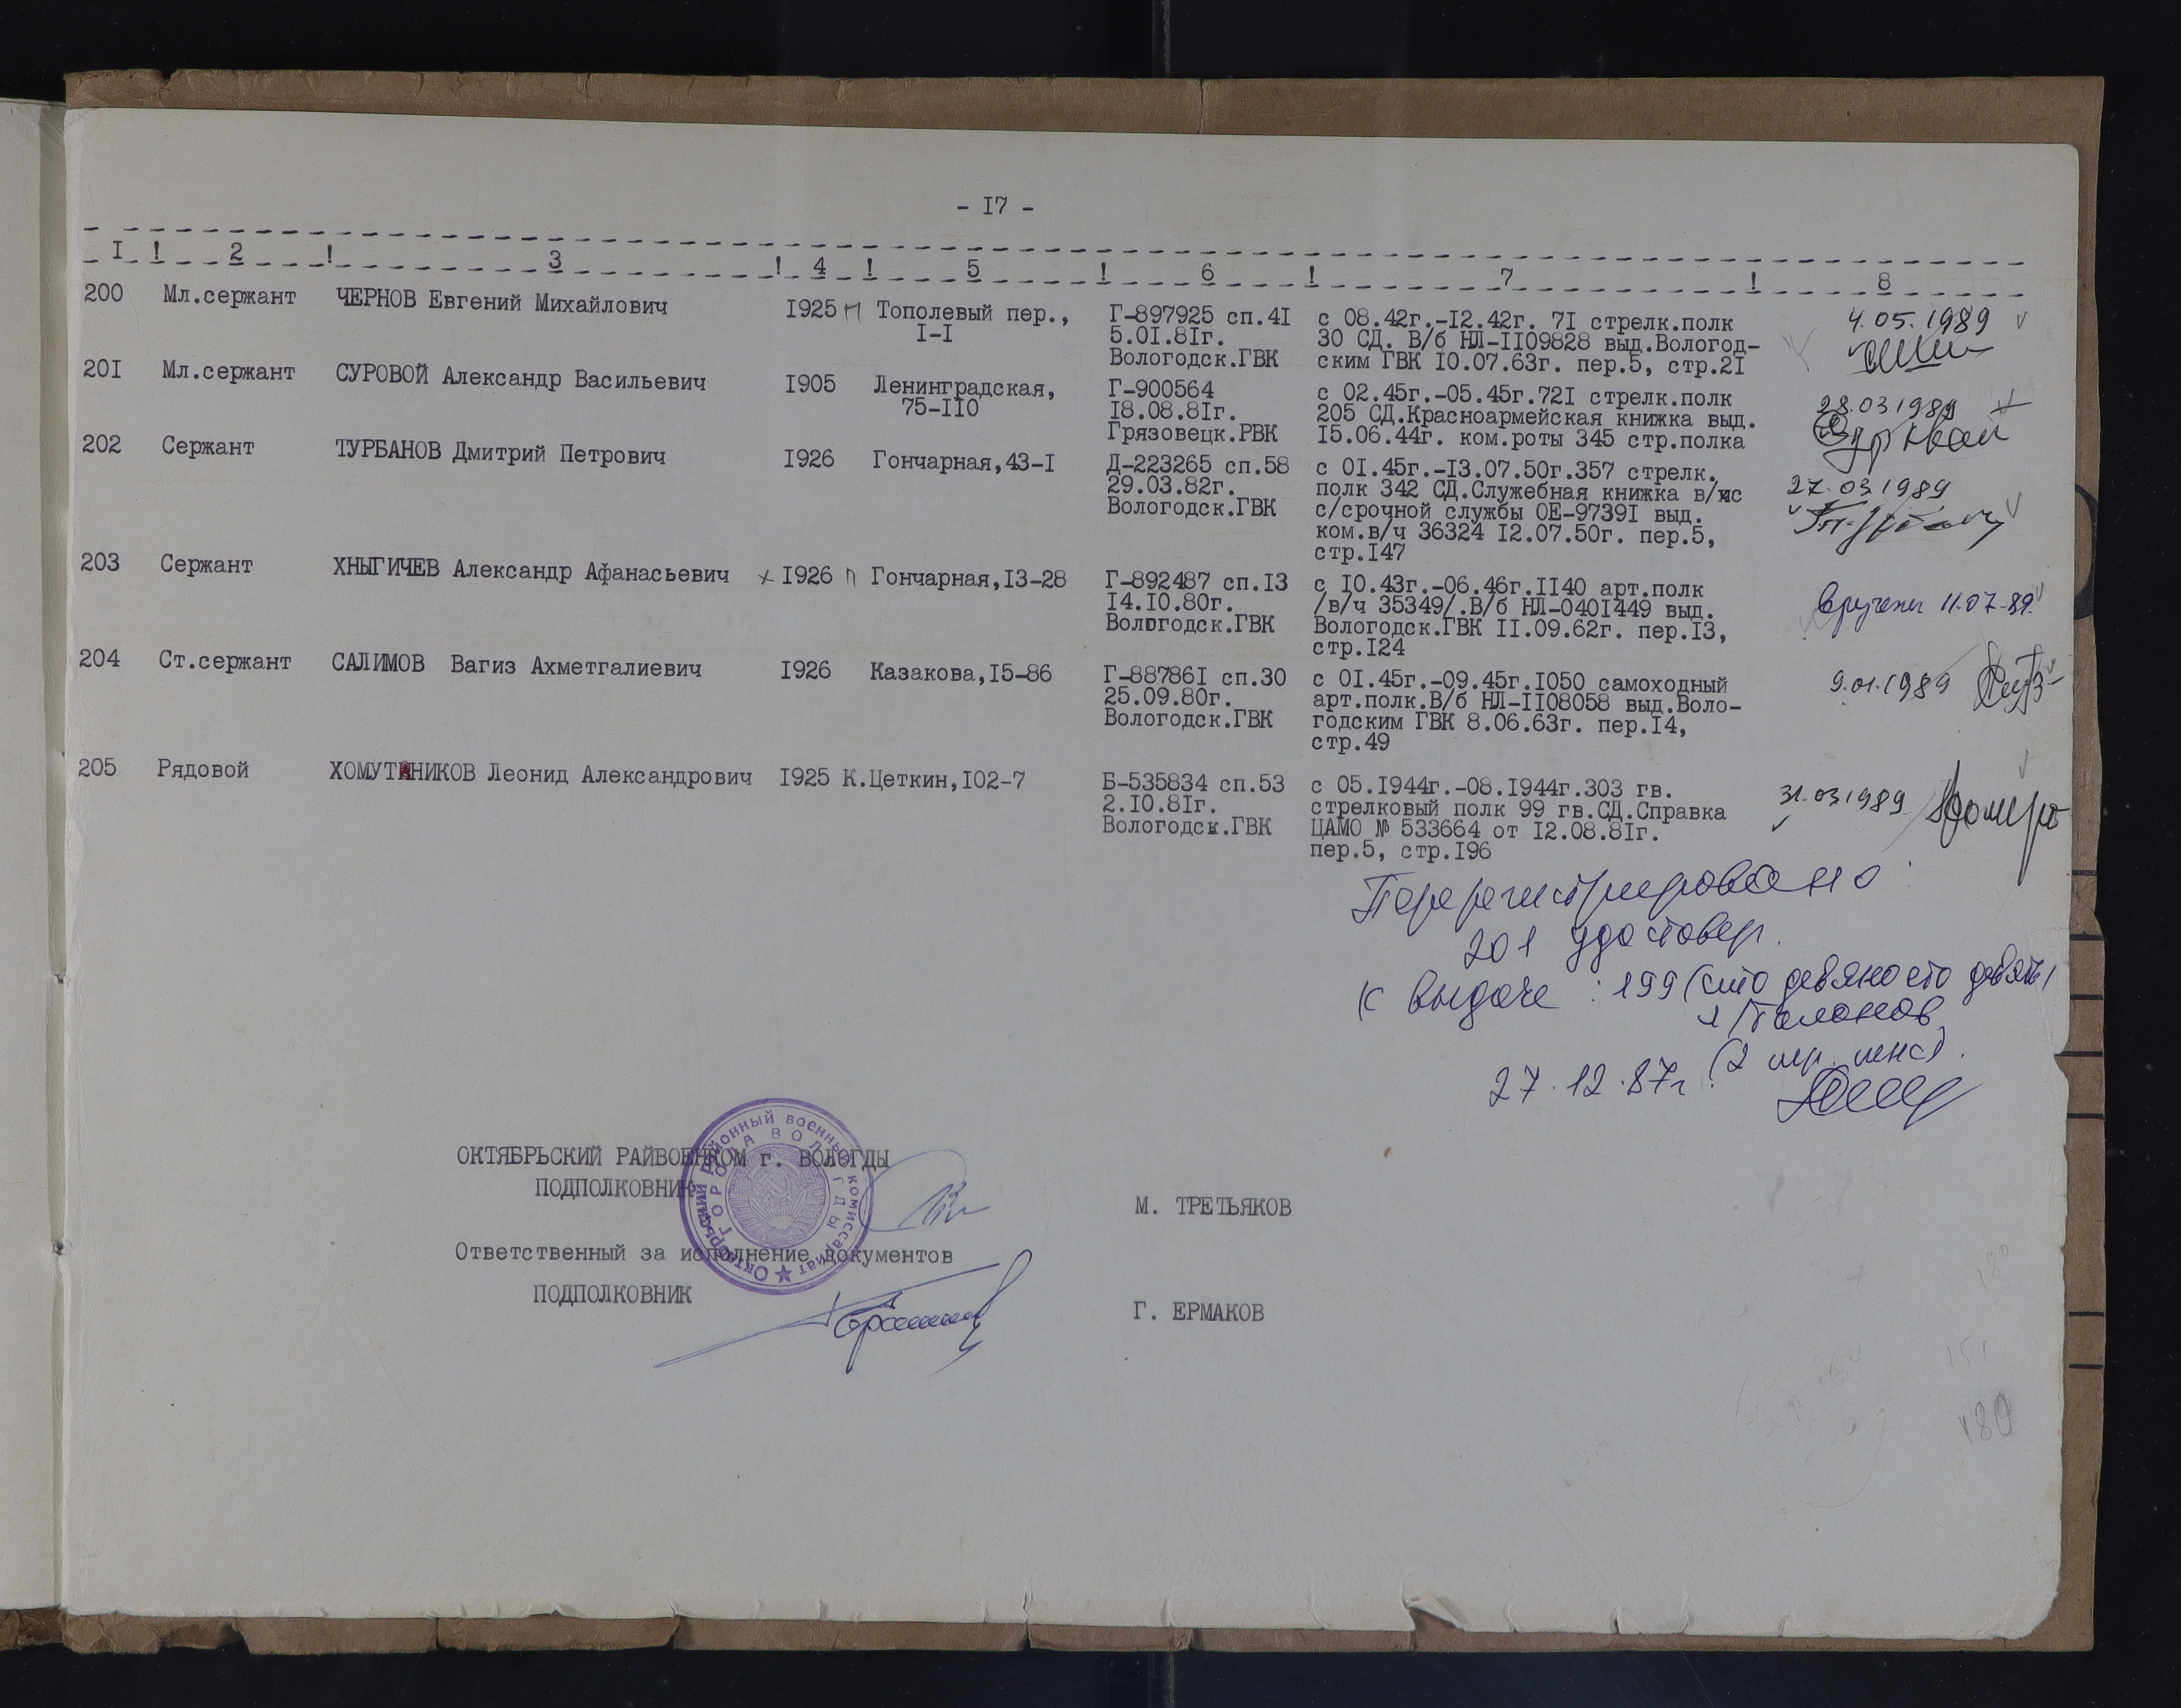 - I7 -
I ! 2 ! 3 ! 4 ! 5 ! 6 ! 7 ! 8
200 Мл.сержант ЧЕРНОВ Евгений Михайлович I925 П Тополевый пер., Г-897925 сп.4I с 08.42г.-I2.42г. 7I стрелк.полк 4.05.1989
I-I 5.0I.8Iг. 30 СД. В/б НЛ-II09828 выд.Вологод-
Вологодск.ГВК ским ГВК I0.07.63г. пер.5, стр.2I
20I Мл.сержант СУРОВОЙ Александр Васильевич I905 Ленинградская, Г-900564 с 02.45г.-05.45г.72I стрелк.полк 28.03.1989
75-II0 I8.08.8Iг. 205 СД.Красноармейская книжка выд.
Грязовецк.РВК I5.06.44г. ком.роты 345 стр.полка
202 Сержант ТУРБАНОВ Дмитрий Петрович I926 Гончарная,43-I Д-223265 сп.58 с 0I.45г.-I3.07.50г.357 стрелк. 27.03.1989
29.03.82г. полк 342 СД.Служебная книжка в/с
Вологодск.ГВК с/срочной службы ОЕ-9739I выд.
ком.в/ч 36324 I2.07.50г. пер.5,
стр.I47
203 Сержант ХНЫГИЧЕВ Александр Афанасьевич х I926 П Гончарная,I3-28 Г-892487 сп.I3 с I0.43г.-06.46г.II40 арт.полк вручены 11.07.89.
I4.I0.80г. /в/ч 35349/.В/б НЛ-040I449 выд.
Вологодск.ГВК Вологодск.ГВК II.09.62г. пер.I3,
стр.I24
204 Ст.сержант САЛИМОВ Вагиз Ахметгалиевич I926 Казакова,I5-86 Г-88786I сп.30 с 0I.45г.-09.45г.I050 самоходный 9.01.1989
25.09.80г. арт.полк.В/б НЛ-II08058 выд.Воло-
Вологодск.ГВК годским ГВК 8.06.63г. пер.I4,
стр.49
205 Рядовой ХОМУТАННИКОВ Леонид Александрович I925 К.Цеткин,I02-7 Б-535834 сп.53 с 05.I944г.-08.I944г.303 гв. 31.03.1989
2.I0.8Iг. стрелковый полк 99 гв.СД.Справка
Вологодск.ГВК ЦАМО № 533664 от I2.08.8Iг.
пер.5, стр.I96
Перерегистрировано:
201 удостовер.
К выдаче: 199 (сто девяносто девять)
талонов
27.12.87г.
ОКТЯБРЬСКИЙ РАЙВОЕНКОМ г. ВОЛОГДЫ
ПОДПОЛКОВНИК М. ТРЕТЬЯКОВ
Октябрьский районный военный комиссариат
ГОРОДА ВОЛОГДЫ
Ответственный за исполнение документов
ПОДПОЛКОВНИК Г. ЕРМАКОВ
180
151
180